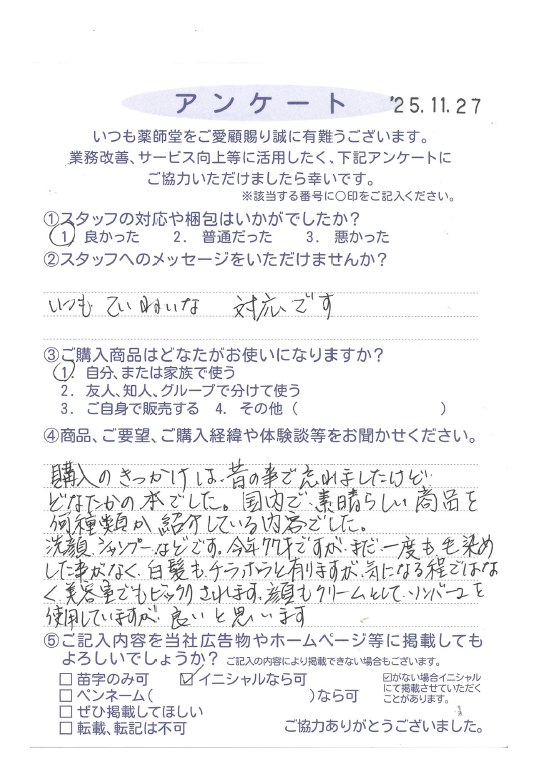 アンケート '25.11.27
いつも薬師堂をご愛顧賜り誠に有難うございます。
業務改善、サービス向上等に活用したく、下記アンケートに
ご協力いただけましたら幸いです。
※該当する番号に○印をご記入ください。
①スタッフの対応や梱包はいかがでしたか?
1. 良かった 2. 普通だった 3. 悪かった
②スタッフへのメッセージをいただけませんか?
いつもていねいな 対応です
③ご購入商品はどなたがお使いになりますか?
1. 自分、または家族で使う
2. 友人、知人、グループで分けて使う
3. ご自身で販売する 4. その他( )
④商品、ご要望、ご購入経緯や体験談等をお聞かせください。
購入のきっかけは、昔の事で忘れましたけど、
どなたかの本でした。国内で、素晴らしい商品を
何種類か紹介している内容でした。
洗顔、シャンプーなどです。今年77才ですが、まだ、一度も毛染め
した事がなく、白髪もチラホラと有りますが、気になる程ではな
く美容室でもビックリされます。顔もクリームとして、ソンバーユを
使用していますが、良いと思います
⑤ご記入内容を当社広告物やホームページ等に掲載しても
よろしいでしょうか? ご記入の内容により掲載できない場合もございます。
□ 苗字のみ可 ☑ イニシャルなら可
□ ペンネーム( )なら可
□ ぜひ掲載してほしい
□ 転載、転記は不可
☑がない場合イニシャル
にて掲載させていただく
ことがあります。
ご協力ありがとうございました。